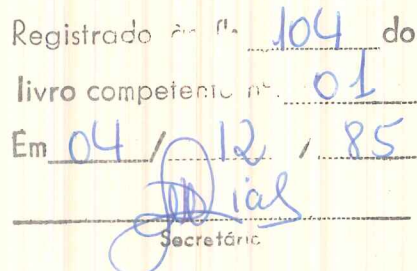 Registrado às fls. 104 do
livro competente nº. 01
Em 04 / 12 / 85
Dias
Secretário